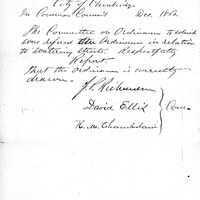 City of Cambridge
In Common Council Dec. 1852
The Committee on Ordinances to which
was refered the Ordinance in relation
to watering streets. Respectfully
Report.
That the ordinance is correctly
drawn.
David Ellis
Com.
H. M. Chamberlain